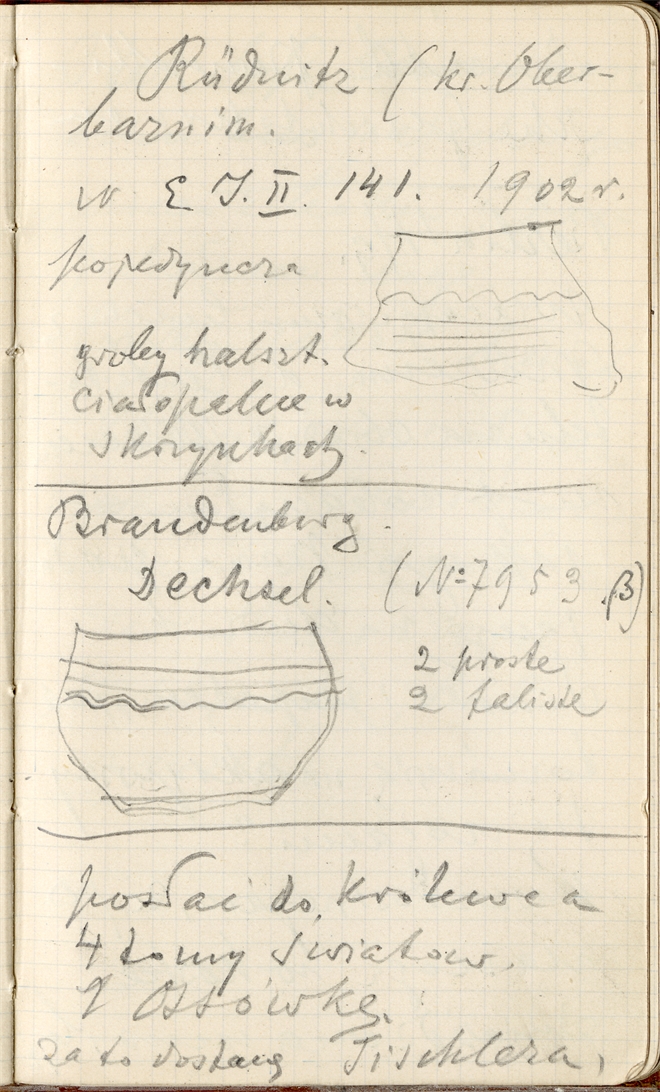 Rüdnitz (kr. Ober-
barnim.
w E J. II. 141. 1902 r.
pojedyncza
groby halszt.
ciałopalne w
skrzynkach.
Brandenburg.
Dechsel. (№ 7953 β)
2 proste
2 faliste
posłać do Królewca
4 tomy Światow.
1 Ossówkę.
za to dostanę Tischlera,